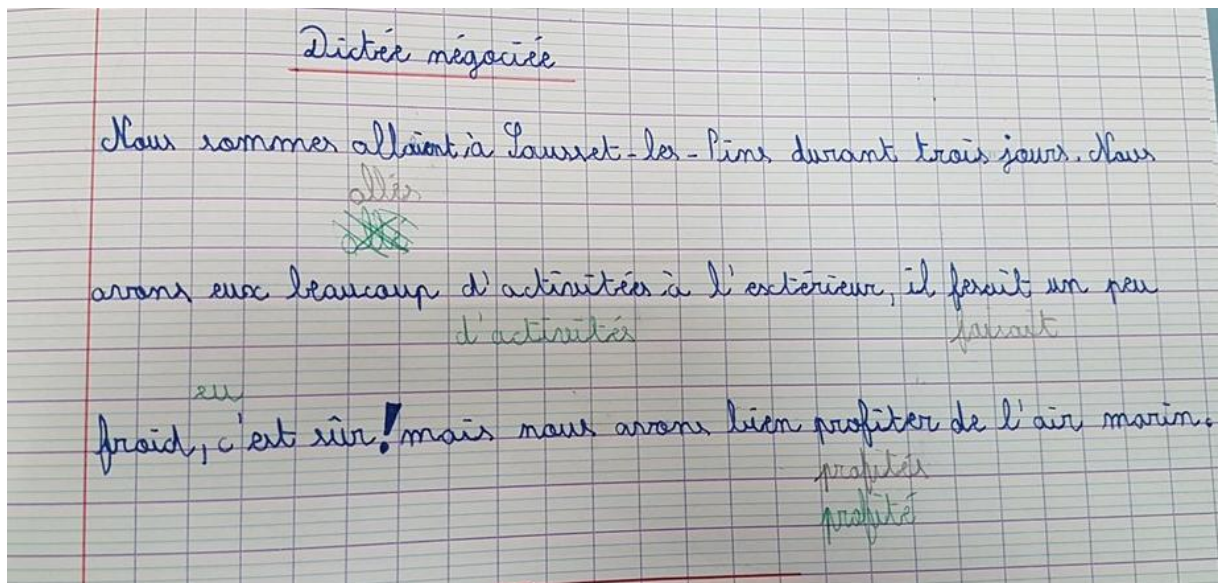 Dictée négociée
Nous sommes allaient à Sausset-les-Pins durant trois jours. Nous
allés
avons eux beaucoup d'activitées à l'extérieur, il fesait un peu
d'activités faisait
eu
froid, c'est sûr! mais nous avons bien profiter de l'air marin.
profités
profité